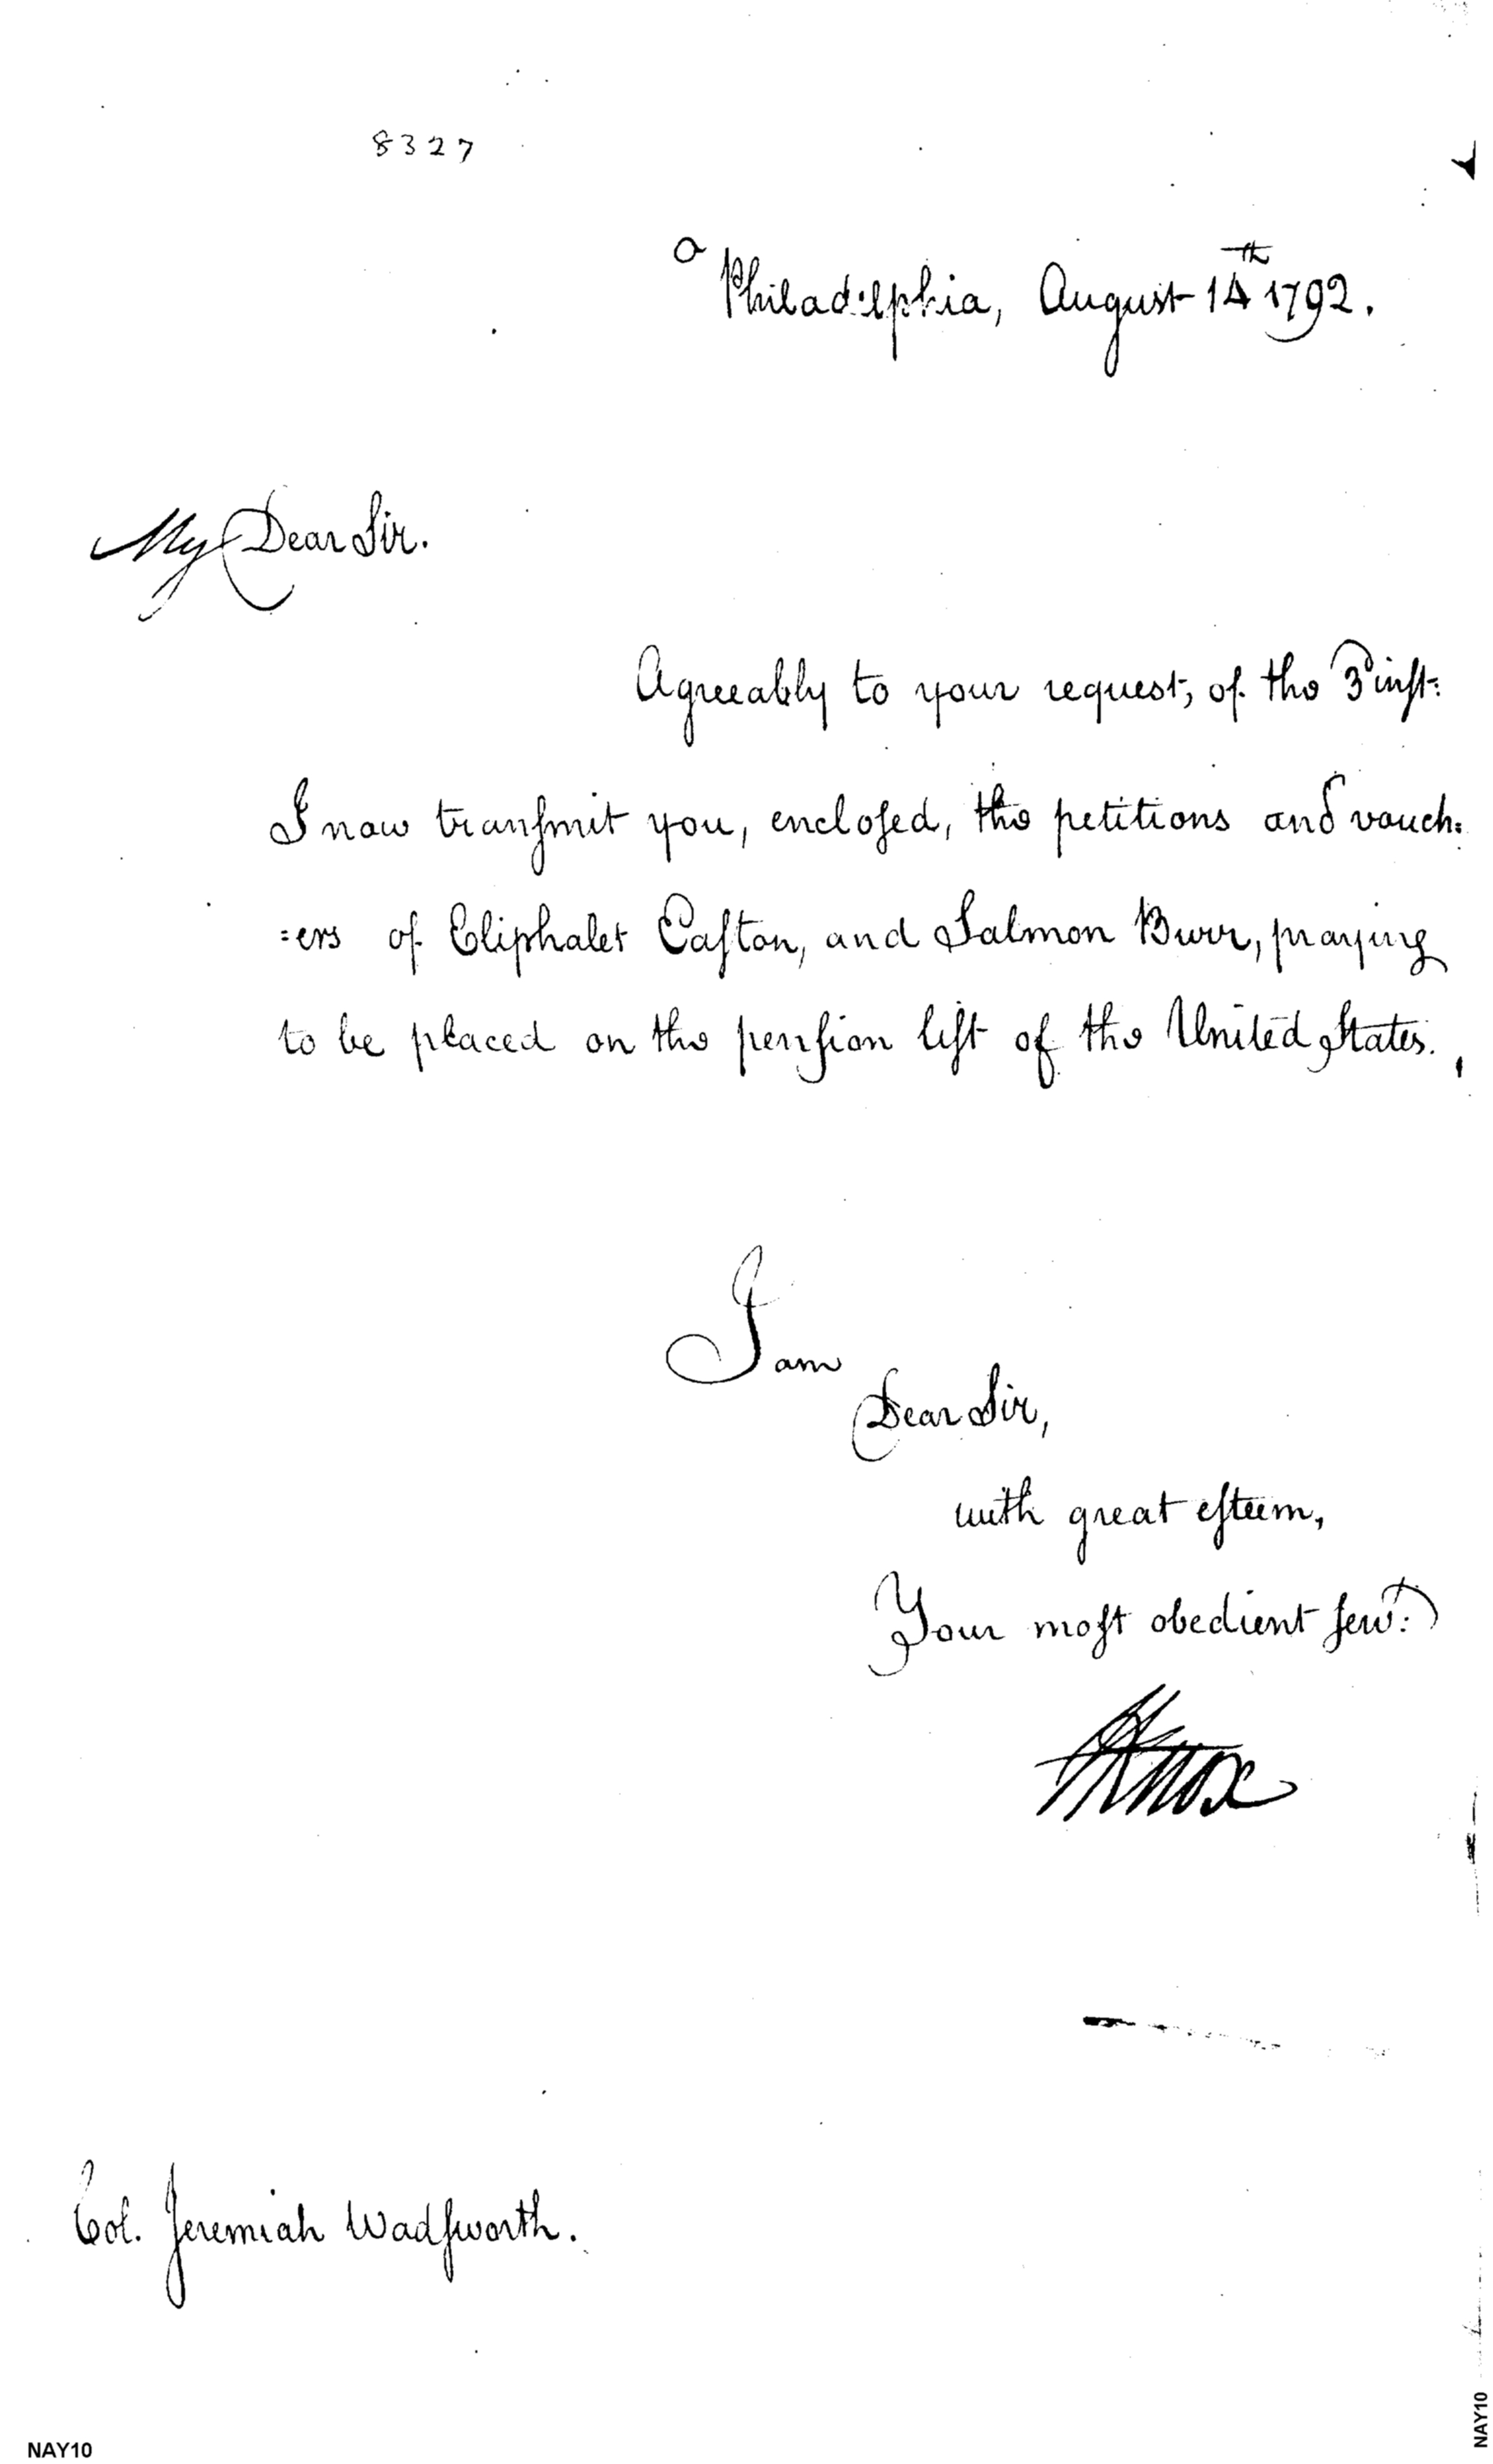 8327
Philadelphia, August 14th 1792.
My Dear Sir.
Agreeably to your request, of the 3d inst:
I now transmit you, enclosed, the petitions and vouch:
:ers of Eliphalet Easton, and Salmon Burr, praying
to be placed on the pension list of the United States.
I am
Dear Sir,
with great esteem,
Your most obedient servt:
HKnox
Col. Jeremiah Wadsworth.
NAY10
NAY10